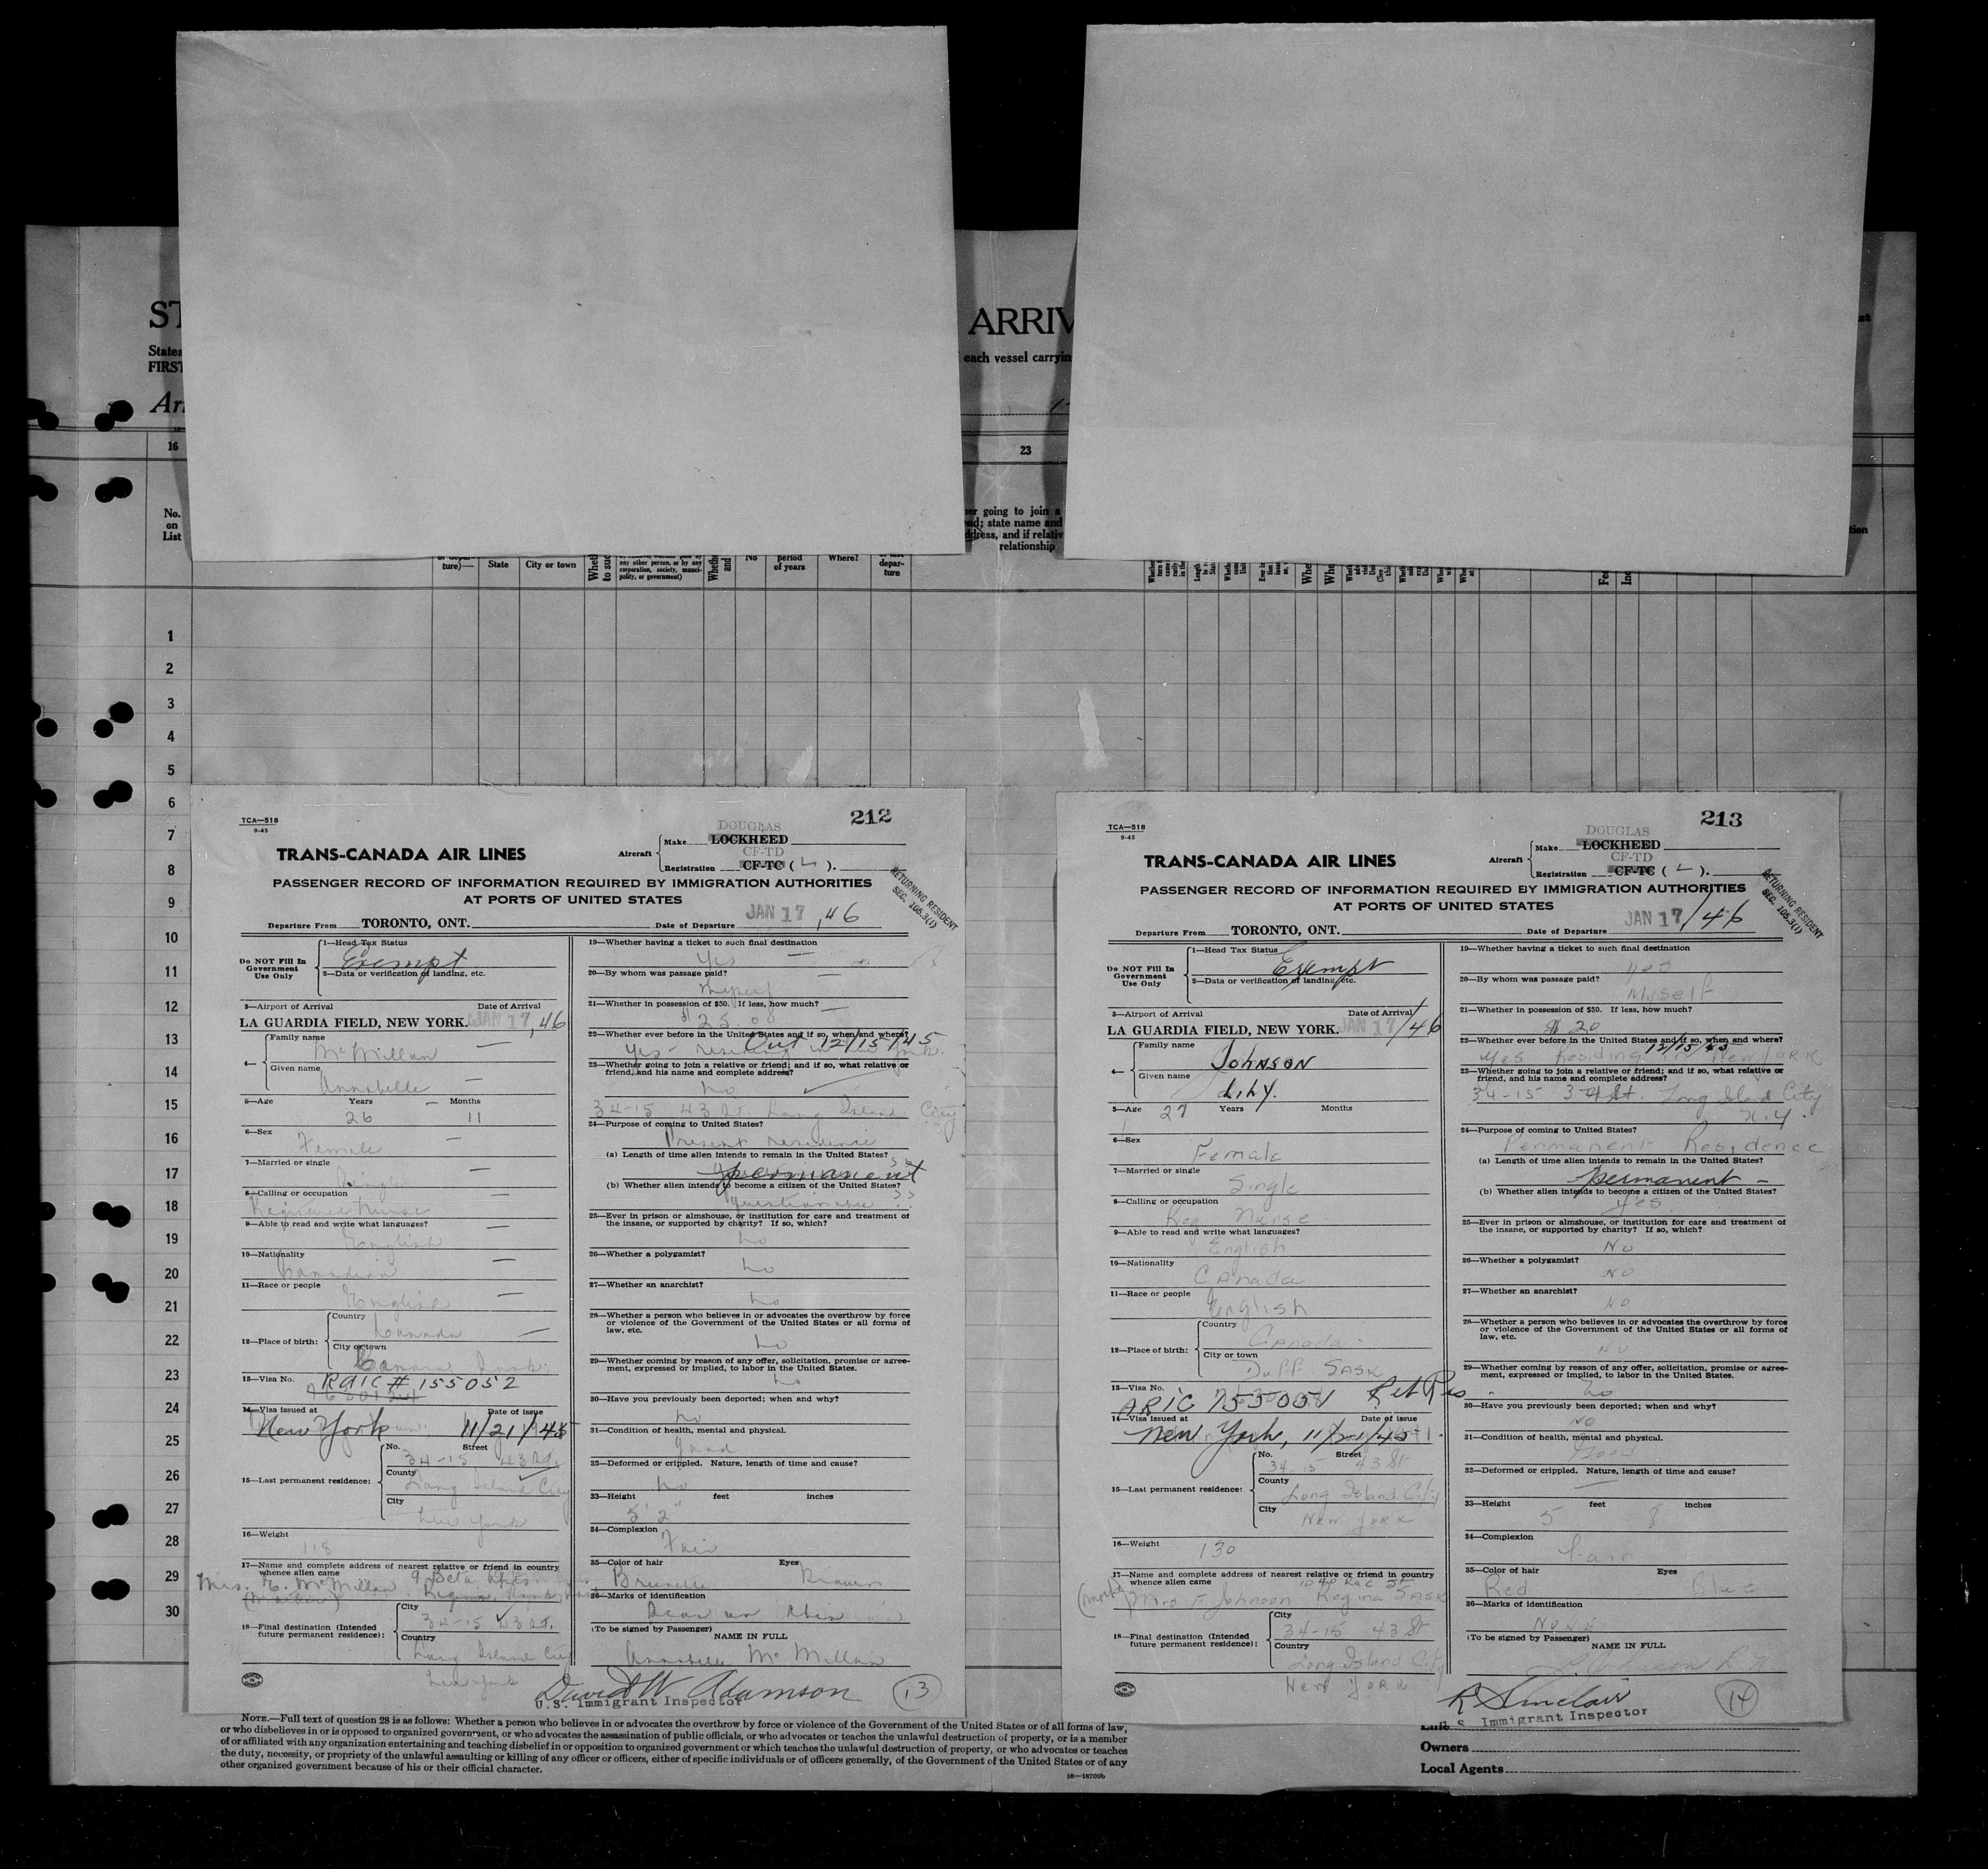 ST
ARRIV
States
each vessel carryin
FIRST
16
23
No.
on
List
er going to join a
ad; state name and
ddress, and if relativ
relationship
ture)—
State
City or town
any other person, or by any
corporation, society, munici-
pality, or government)
No
period
of years
Where?
depar-
ture
1
2
3
4
5
6
7
8
9
10
11
12
13
14
15
16
17
18
19
20
21
22
23
24
25
26
27
28
29
30
TCA—518
9-45
212
DOUGLAS
Aircraft
Make LOCKHEED
CF-TD
Registration CF-TC ( L ).
TRANS-CANADA AIR LINES
PASSENGER RECORD OF INFORMATION REQUIRED BY IMMIGRATION AUTHORITIES
AT PORTS OF UNITED STATES
RETURNING RESIDENT
SEC. 105.3(1)
Departure From TORONTO, ONT. Date of Departure JAN 17, 46
Do NOT Fill In
Government
Use Only
1—Head Tax Status
Exempt
2—Data or verification of landing, etc.
3—Airport of Arrival Date of Arrival
LA GUARDIA FIELD, NEW YORK. JAN 17, 46
4—
Family name
McMillan
Given name
Annabelle
5—Age Years Months
26 11
6—Sex
Female
7—Married or single
Single
8—Calling or occupation
Registered Nurse
9—Able to read and write what languages?
English
10—Nationality
Canadian
11—Race or people
English
12—Place of birth:
Country
Canada
City or town
Sask.
13—Visa No. RAIC # 155052
14—Visa issued at Date of issue
New York 11/21/45
15—Last permanent residence:
No. Street
34-15 43 St.
County
Long Island City
City
New York
16—Weight
118
17—Name and complete address of nearest relative or friend in country
whence alien came
Mrs. E. McMillan 9 Beta Apts.
(Mother) Regina, Sask
18—Final destination (Intended
future permanent residence):
City
34-15 43 St.
Country
Long Island City
New York
19—Whether having a ticket to such final destination
Yes
20—By whom was passage paid?
Myself
21—Whether in possession of $50. If less, how much?
$25.00
22—Whether ever before in the United States and if so, when and where?
Out 12/15/45
Yes - residing in New York.
23—Whether going to join a relative or friend; and if so, what relative or
friend, and his name and complete address?
No
34-15 43 St. Long Island City
24—Purpose of coming to United States?
Present residence
(a) Length of time alien intends to remain in the United States?
permanent
(b) Whether alien intends to become a citizen of the United States?
questionable
25—Ever in prison or almshouse, or institution for care and treatment of
the insane, or supported by charity? If so, which?
No
26—Whether a polygamist?
No
27—Whether an anarchist?
No
28—Whether a person who believes in or advocates the overthrow by force
or violence of the Government of the United States or all forms of
law, etc.
No
29—Whether coming by reason of any offer, solicitation, promise or agree-
ment, expressed or implied, to labor in the United States.
No
30—Have you previously been deported; when and why?
No
31—Condition of health, mental and physical.
Good
32—Deformed or crippled. Nature, length of time and cause?
No
33—Height feet inches
5' 2"
34—Complexion
Fair
35—Color of hair Eyes
Brunette Brown
36—Marks of identification
Scar on Chin
(To be signed by Passenger)
NAME IN FULL
Annabelle McMillan
David W Adamson
U.S. Immigrant Inspector
13
TCA—518
9-45
213
DOUGLAS
Aircraft
Make LOCKHEED
CF-TD
Registration CF-TC ( L ).
TRANS-CANADA AIR LINES
PASSENGER RECORD OF INFORMATION REQUIRED BY IMMIGRATION AUTHORITIES
AT PORTS OF UNITED STATES
RETURNING RESIDENT
SEC. 105.3(1)
Departure From TORONTO, ONT. Date of Departure JAN 17/46
Do NOT Fill In
Government
Use Only
1—Head Tax Status
Exempt
2—Data or verification of landing, etc.
3—Airport of Arrival Date of Arrival
LA GUARDIA FIELD, NEW YORK. JAN 17/46
4—
Family name
Johnson
Given name
Lily.
5—Age 27 Years Months
6—Sex
Female
7—Married or single
Single
8—Calling or occupation
Reg Nurse
9—Able to read and write what languages?
English
10—Nationality
Canada
11—Race or people
English
12—Place of birth:
Country
Canada
City or town
Duff Sask
13—Visa No.
ARIC 155051 Ret Res
14—Visa issued at Date of issue
New York, 11/21/45
15—Last permanent residence:
No. Street
34 15 43 St
County
Long Island City
City
New York
16—Weight
130
17—Name and complete address of nearest relative or friend in country
whence alien came
Mrs F Johnson Regina Sask
18—Final destination (Intended
future permanent residence):
City
34-15 43 St
Country
Long Island City
New York
19—Whether having a ticket to such final destination
Yes
20—By whom was passage paid?
Myself
21—Whether in possession of $50. If less, how much?
$ 20
22—Whether ever before in the United States and if so, when and where?
12/15/45
Yes Residing in New York
23—Whether going to join a relative or friend; and if so, what relative or
friend, and his name and complete address?
34-15 St. Long Island City
N.Y.
24—Purpose of coming to United States?
Permanent Residence
(a) Length of time alien intends to remain in the United States?
permanent -
(b) Whether alien intends to become a citizen of the United States?
Yes
25—Ever in prison or almshouse, or institution for care and treatment of
the insane, or supported by charity? If so, which?
No
26—Whether a polygamist?
No
27—Whether an anarchist?
No
28—Whether a person who believes in or advocates the overthrow by force
or violence of the Government of the United States or all forms of
law, etc.
No
29—Whether coming by reason of any offer, solicitation, promise or agree-
ment, expressed or implied, to labor in the United States.
No
30—Have you previously been deported; when and why?
No
31—Condition of health, mental and physical.
Good
32—Deformed or crippled. Nature, length of time and cause?
33—Height feet inches
5 8
34—Complexion
Fair
35—Color of hair Eyes
Red Blue
36—Marks of identification
None
(To be signed by Passenger)
NAME IN FULL
L. Johnson R.N.
R Sinclair
S. Immigrant Inspector
14
NOTE.—Full text of question 28 is as follows: Whether a person who believes in or advocates the overthrow by force or violence of the Government of the United States or of all forms of law,
or who disbelieves in or is opposed to organized government, or who advocates the assassination of public officials, or who advocates or teaches the unlawful destruction of property, or is a member
of or affiliated with any organization entertaining and teaching disbelief in or opposition to organized government or which teaches the unlawful destruction of property, or who advocates or teaches
the duty, necessity, or propriety of the unlawful assaulting or killing of any officer or officers, either of specific individuals or of officers generally, of the Government of the United States or of any
other organized government because of his or their official character.
16—18702b
Owners
Local Agents